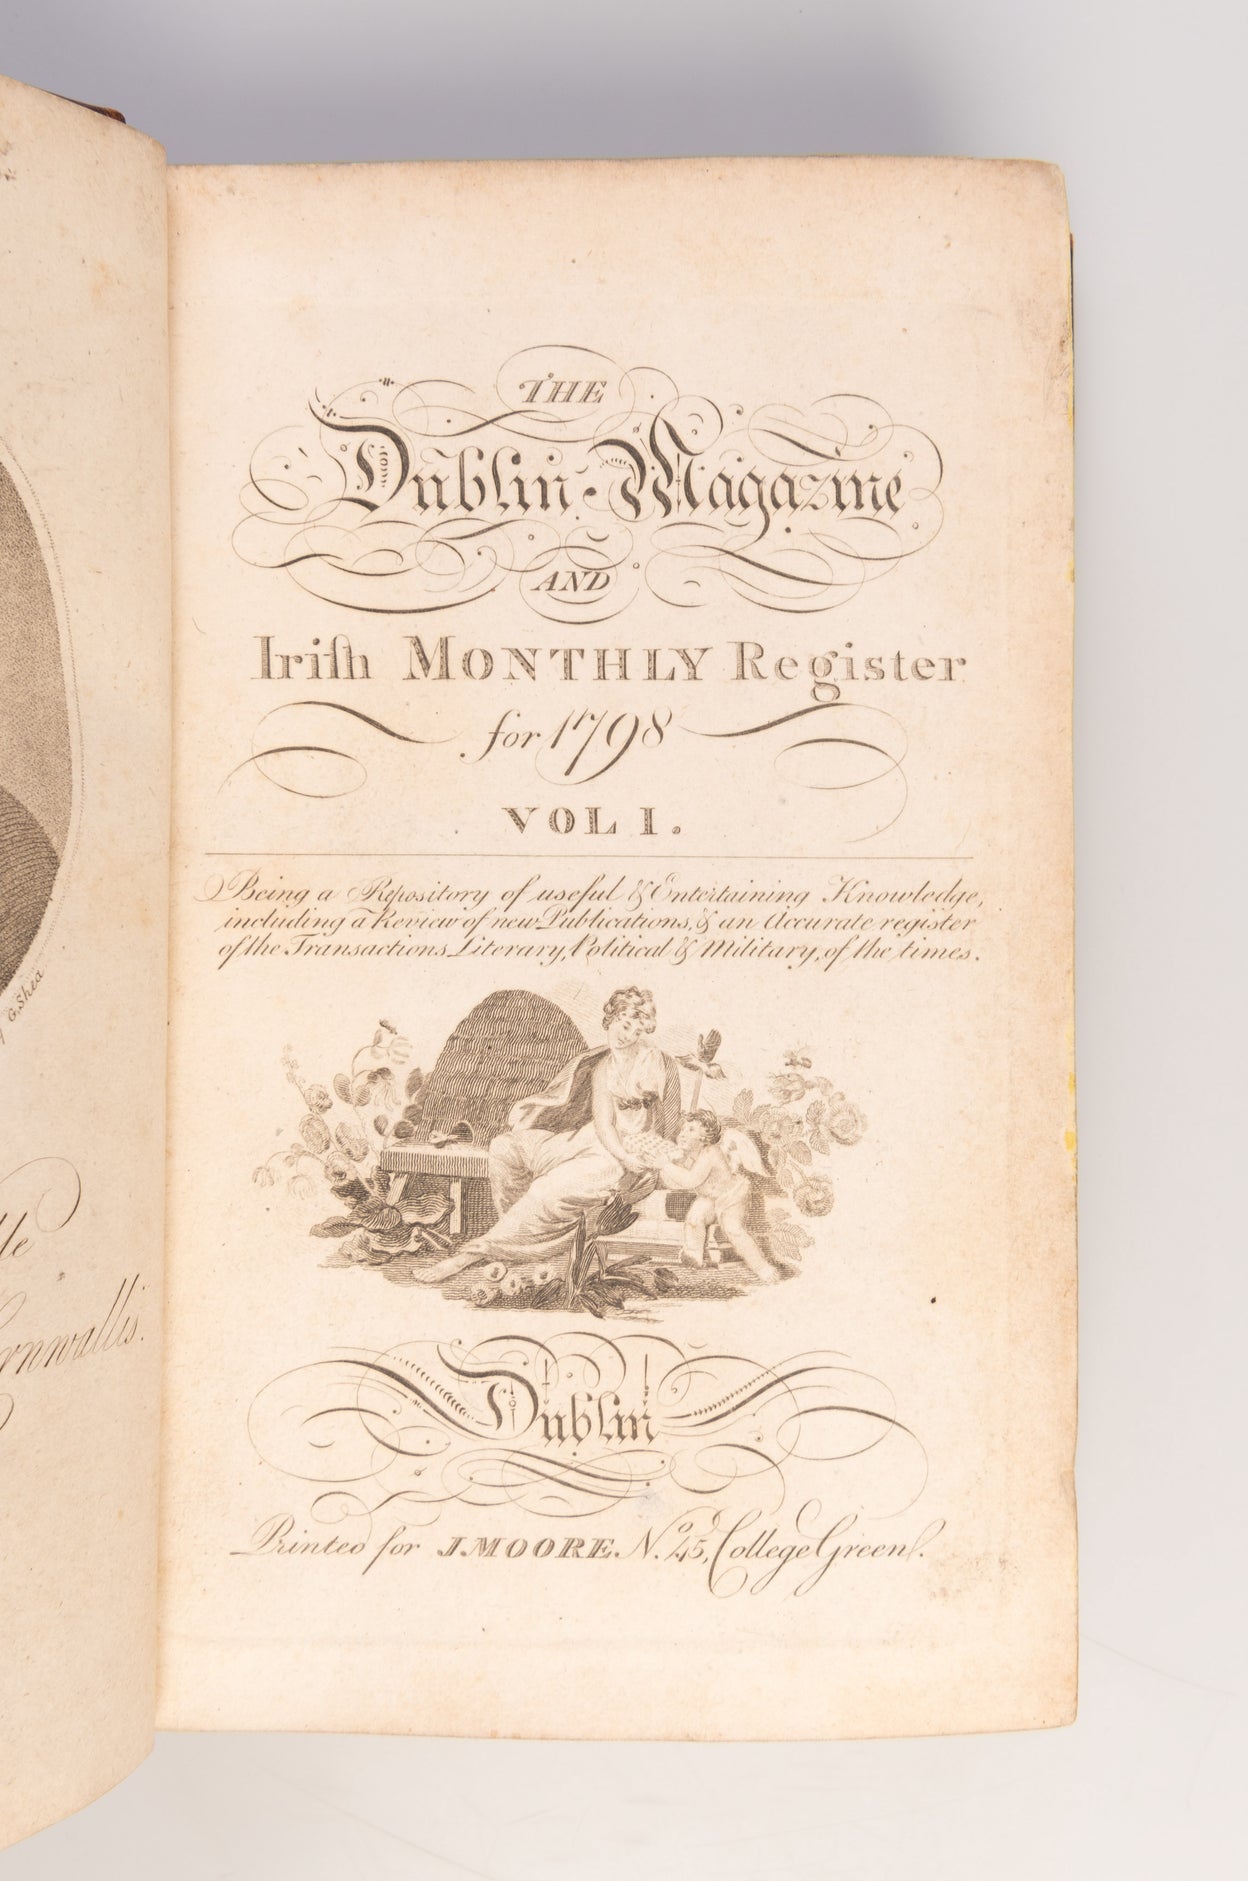 G. Shea
Cornwallis.
THE
Dublin Magazine
AND
Iriſh MONTHLY Register
for 1798
VOL I.
Being a Repository of useful & Entertaining Knowledge,
including a Review of new Publications, & an Accurate register
of the Transactions Literary, Political & Military, of the times.
Dublin
Printed for J. MOORE. No. 45, College Green.